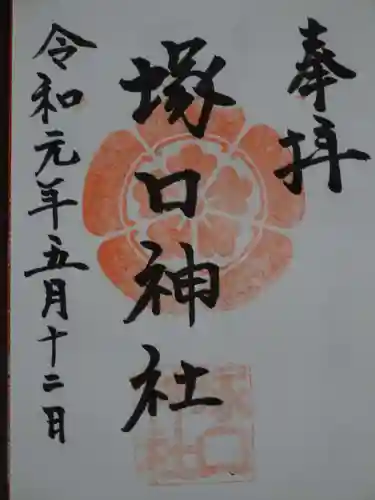 奉拝
塚口神社
令和元年五月十二日